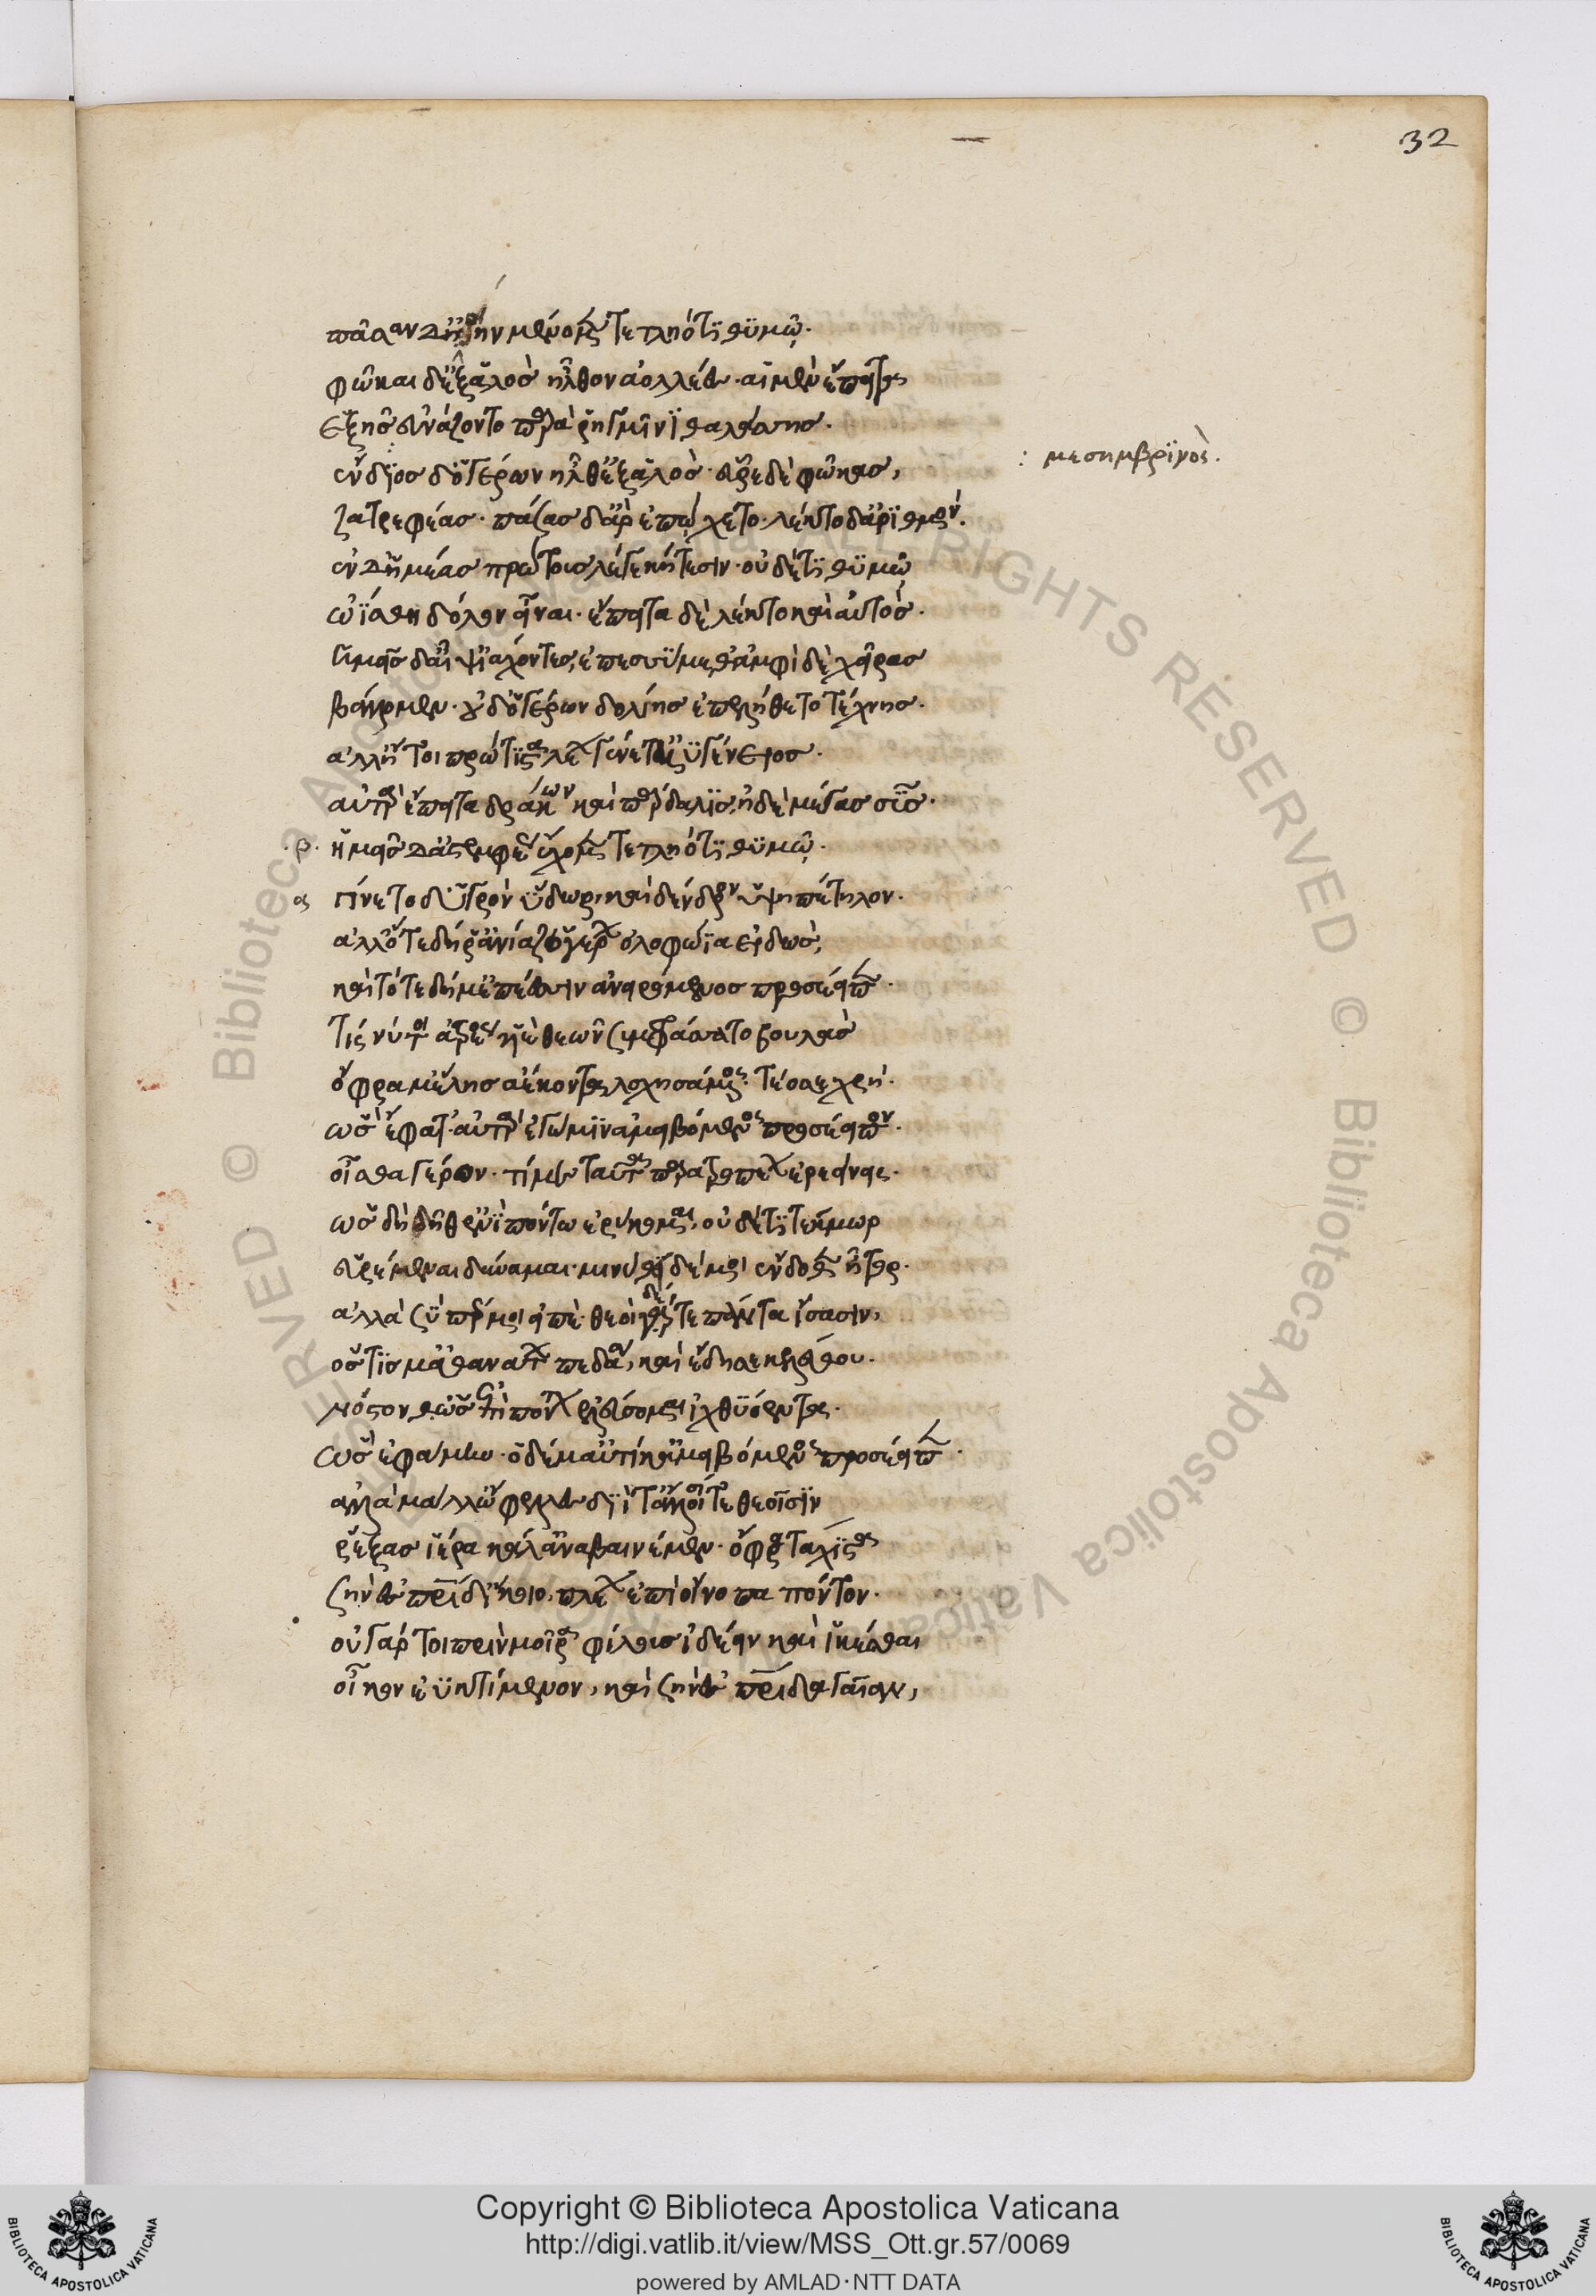 32
πᾶσαν δ' ἠοίην μένομεν τετληότι θυμῷ.
φῶκαι δ' ἐξ ἁλὸς ἦλθον ἀολλέες. αἱ μὲν ἔπειτα
ἑξῆς εὐνάζοντο παρὰ ῥηγμῖνι θαλάσσης.
ἔνδιος δ' ὁ γέρων ἦλθ' ἐξ ἁλὸς. εὗρε δὲ φώκας,
: μεσημβρινὸς.
ζατρεφέας. πάσας δ' ἄρ' ἐπῴχετο. λέκτο δ' ἀριθμόν.
ἐν δ' ἡμέας πρώτους λέγε κήτεσιν. οὐδέ τι θυμῷ
ὠΐσθη δόλον εἶναι. ἔπειτα δὲ λέκτο καὶ αὐτός.
ἡμεῖς δ' αἶψ' ἰάχοντες, ἐπεσσύμεθ' ἀμφὶ δὲ χεῖρας
βάλλομεν. οὐδ' ὁ γέρων δολίης ἐπελήθετο τέχνης.
ἀλλ' ἤτοι πρώτιστα λέων γένετ' ἠϋγένειος.
αὐτὰρ ἔπειτα δράκων καὶ πάρδαλις, ἠδὲ μέγας σῦς.
.β. ἡμεῖς δ' ἀστεμφέως ἔχομεν τετληότι θυμῷ.
α γίνετο δ' ὑγρὸν ὕδωρ, καὶ δένδρον ὑψιπέτηλον.
ἀλλ' ὅτε δή ῥ' ἀνίαζ' ὁ γέρων ὀλοφώϊα εἰδώς,
καὶ τότε δή μ' ἐπέεσσιν ἀνειρόμενος προσέειπε.
τίς νύ τοι ἀτρέος υἱὲ θεῶν συμφράσσατο βουλὰς
ὄφρα μ' ἕλῃς ἀέκοντα λοχησάμενος. τέο σε χρή.
ὣς ἔφατ'. αὐτὰρ ἐγώ μιν ἀμειβόμενος προσέειπον.
οἶσθα γέρον. τί με ταῦτα παρατροπέων ἐρεείνεις.
ὡς δὴ δήθ' ἐνὶ πόντῳ ἐρύκομαι, οὐδέ τι τέκμωρ
εὑρέμεναι δύναμαι. μινύθει δέ μοι ἔνδοθεν ἦτορ.
ἀλλὰ σύ πέρ μοι εἰπὲ. θεοὶ δέ τε πάντα ἴσασιν,
ὅς τίς μ' ἀθανάτων πεδάᾳ, καὶ ἔδησε κελεύθου.
νόστον θ' ὡς ἐπὶ πόντον ἐλεύσομαι ἰχθυόεντα.
ὣς ἐφάμην. ὁ δέ μ' αὐτίκ' ἀμειβόμενος προσέειπεν.
ἀλλὰ μάλ' ὤφελλες διΐ τ' ἄλλοισί τε θεοῖσιν
ῥέξας ἱερὰ κάλ' ἀναβαινέμεν. ὄφρα τάχιστα
σὴν ἐς πατρίδ' ἵκοιο, πλέων ἐπὶ οἴνοπα πόντον.
οὐ γάρ τοι πρὶν μοῖρα φίλους ἰδέειν καὶ ἱκέσθαι
οἶκον ἐϋκτίμενον, καὶ σὴν ἐς πατρίδα γαῖαν,
Copyright © Biblioteca Apostolica Vaticana
http://digi.vatlib.it/view/MSS_Ott.gr.57/0069
powered by AMLAD·NTT DATA